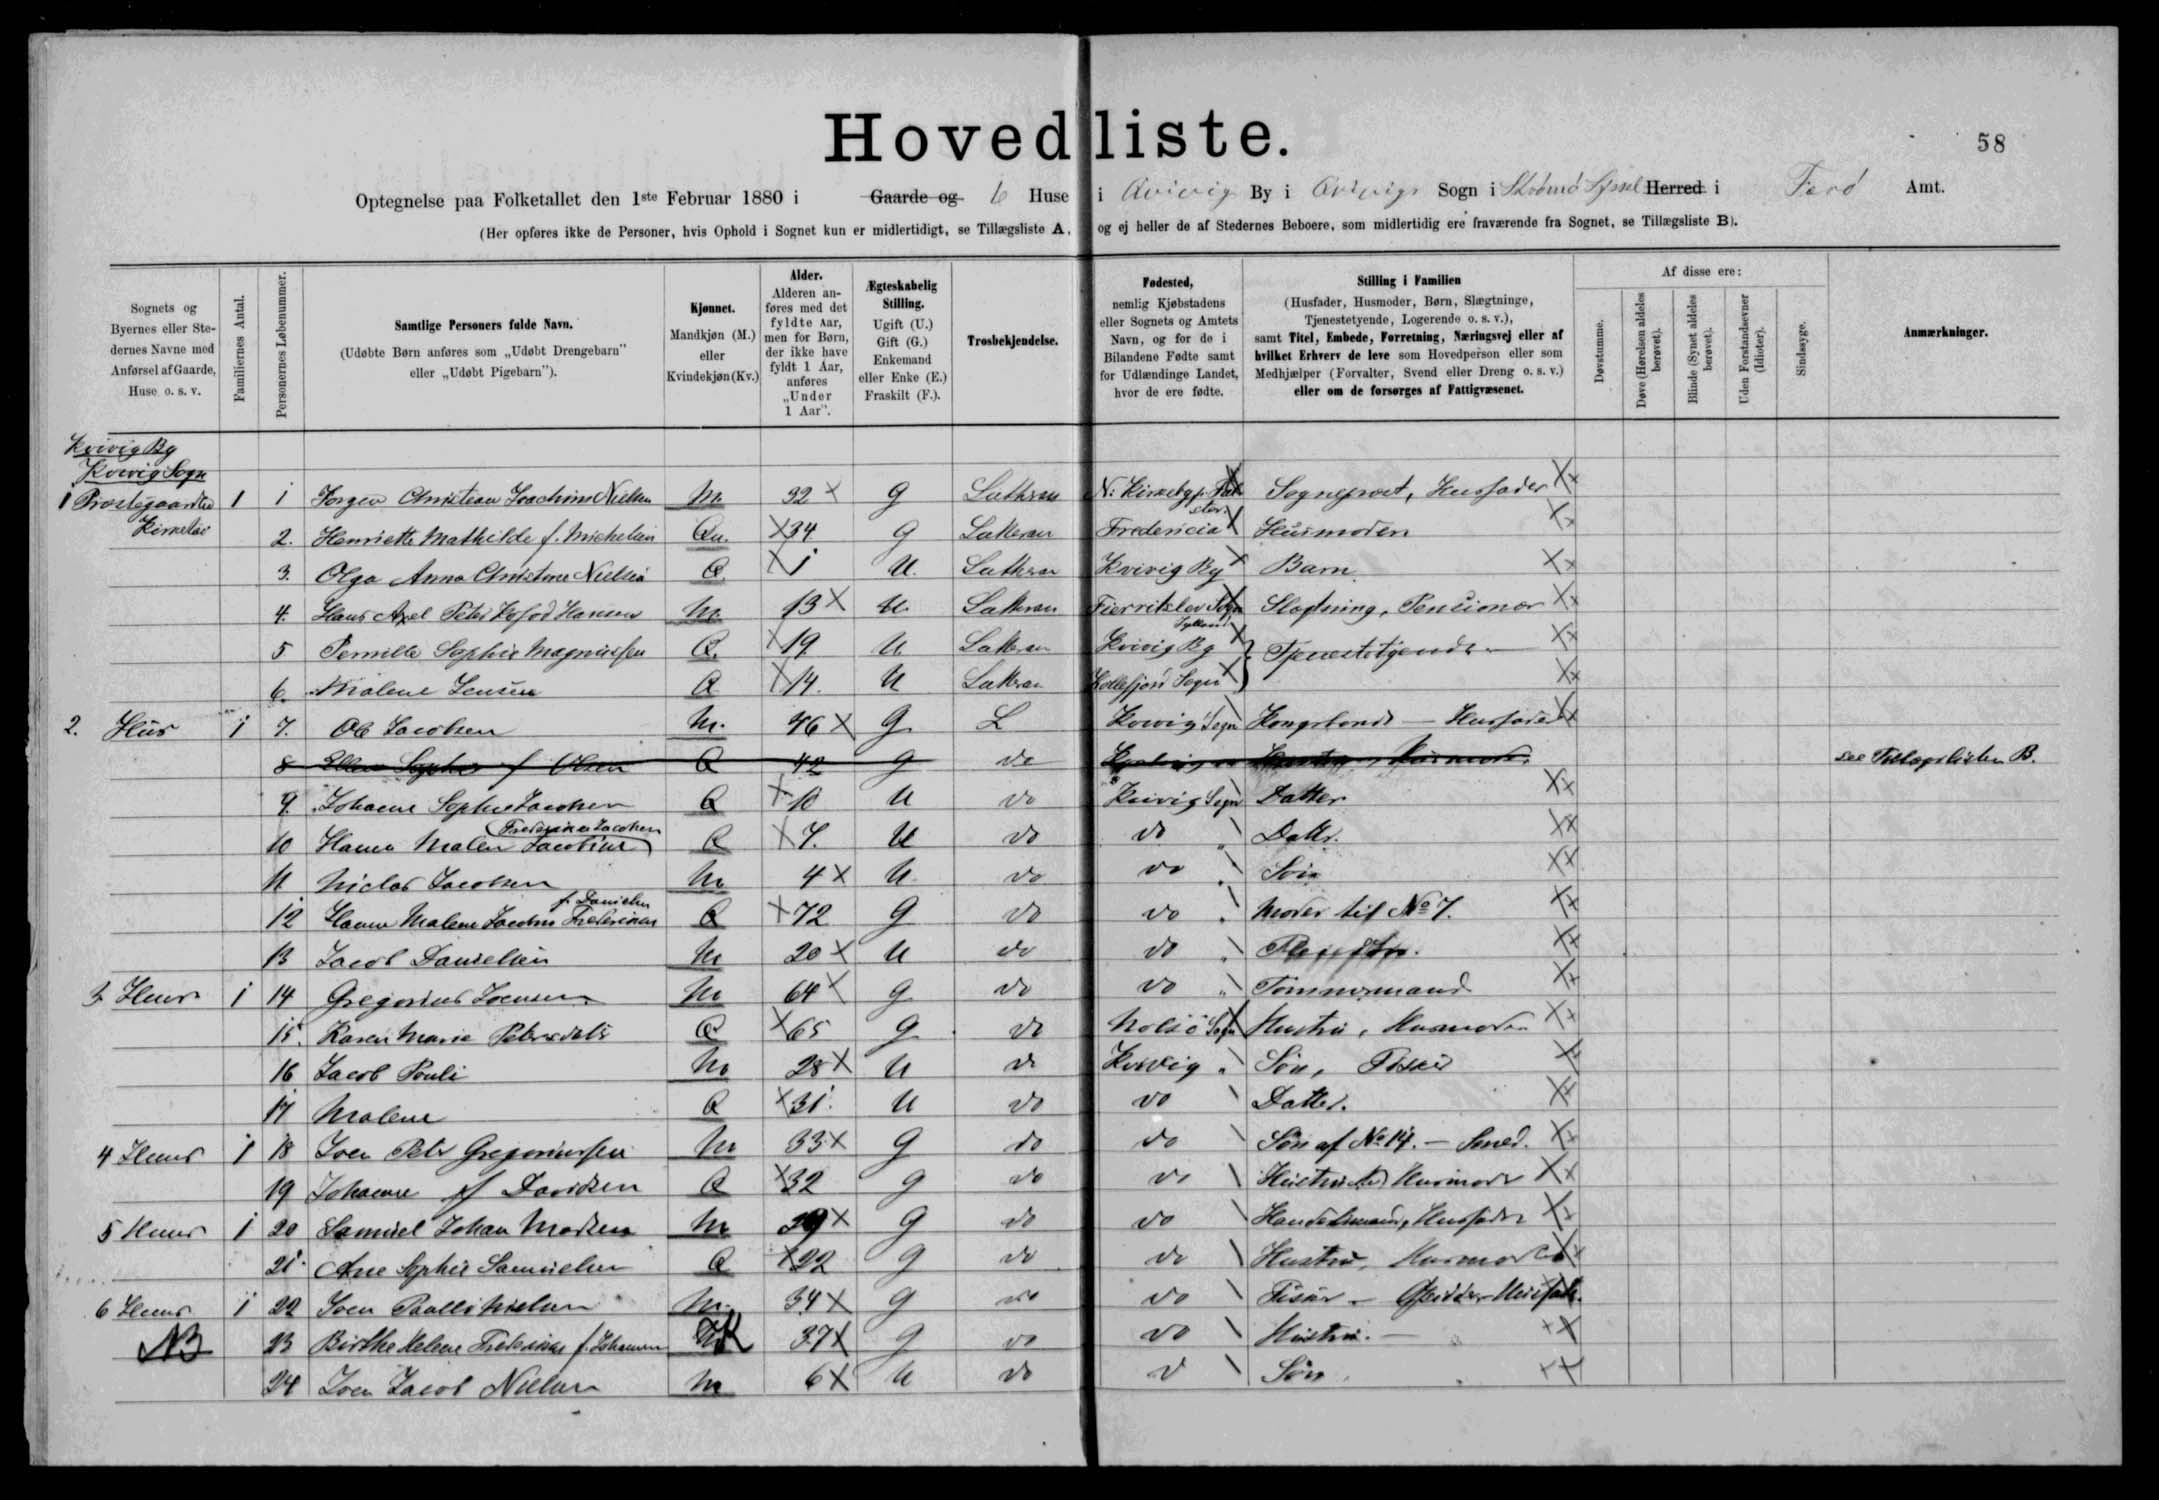 58
Hovedliste.
Optegnelse paa Folketallet den 1ste Februar 1880 i Gaarde og 6 Huse i Qvivig By i Qvivigs Sogn i Strømø Syssel Herred i Færø Amt.
(Her opføres ikke de Personer, hvis Ophold i Sognet kun er midlertidigt, se Tillægsliste A, og ej heller de af Stedernes Beboere, som midlertidig ere fraværende fra Sognet, se Tillægsliste B).
Sognets og Byernes eller Stedernes Navne med Anførsel af Gaarde, Huse o. s. v.
Familiernes Antal.
Personernes Løbenummer.
Samtlige Personers fulde Navn.
(Udøbte Børn anføres som „Udøbt Drengebarn" eller „Udøbt Pigebarn").
Kjønnet.
Mandkjøn (M.) eller Kvindekjøn (Kv.)
Alder.
Alderen anføres med det fyldte Aar, men for Børn, der ikke have fyldt 1 Aar, anføres „Under 1 Aar".
Ægteskabelig Stilling.
Ugift (U.) Gift (G.) Enkemand eller Enke (E.) Fraskilt (F.).
Trosbekjendelse.
Fødested,
nemlig Kjøbstadens eller Sognets og Amtets Navn, og for de i Bilandene Fødte samt for Udlændinge Landet, hvor de ere fødte.
Stilling i Familien
(Husfader, Husmoder, Børn, Slægtninge, Tjenestetyende, Logerende o. s. v.),
samt Titel, Embede, Forretning, Næringsvej eller af hvilket Erhverv de leve som Hovedperson eller som Medhjælper (Forvalter, Svend eller Dreng o. s. v.) eller om de forsørges af Fattigvæsenet.
Af disse ere:
Døvstumme.
Døve (Hørelsen aldeles berøvet).
Blinde (Synet aldeles berøvet).
Uden Forstandsevner (Idioter).
Sindssyge.
Anmærkninger.
Kvivig By
Kvivig Sogn
1 Præstegaarden 1 1 Jørgen Christian Joachim Nielsen M. 32 G Luthran N: Kirkeby Sognepræst, Husfader
2. Henriette Mathilde f. Michelsen Qu. 34 G Lutheran Fredericia Husmoder
3. Olga Anna Christine Nielsen Q. 1 U. Luthran Kvivig By Barn
4. Hans Axel Peter Kofod Hansen M. 13 U. Lutheran Fierritslev Sogn Jylland Slægtning, Pensionær
5 Pernille Sophie Magnussen Q. 19 U Lutheran Kvivig By Tjenestetyende
6. Malene Jensen Q 14. U Lutheran Kollefjord Sogn
2. Hus 1 7. Ole Jacobsen M. 46 G L Kvivig Sogn Kongsbonde – Husfader
8 Ellen Sophie f Olsen Q 42 G do Husmoder see Tillægslisten B.
9. Johanne Sophie Jacobsen Q 10 U do Kvivig Sogn Datter
10 Hanne Malene Frederikke Jacobsen Q 7. U do do Datter.
11 Niclas Jacobsen M 4 U do do Søn
12 Hanne Malene Jacobine Frederikke f. Danielsen Q 72 G do do Moder til No 7.
13 Jacob Danielsen M 20 U do do
3 Huus 1 14 Gregorius Joensen M 64 G do do Tømmermand
15. Karen Marie Petersdatter Q 65 G do Nolsø Sogn Hustru, Husmoder
16 Jacob Pouli M 28 U do Kvivig Søn, Fisker
17 Malene Q 31. U do do Datter.
4 Huus 1 18 Joen Peter Gregoriussen M 33 G do do Søn af No 14. – Smed.
19 Johanne f Davidsen Q 32 G do do Hustru Husmoder
5 Huus 1 20 Samuel Johan Madsen M 29 G do do Handelsmand, Husfader
21. Ane Sophie Samuelsen Q 22 G do do Hustru, Husmoder
6 Huus 1 22 Joen Nielsen M. 34 G do do Fisker – Husfader.
NB 23 Birthe Helene Frederikke f. Johannesen K 37 G do do Hustru. –
24 Joen Jacob Nielsen M 6 U do d Søn